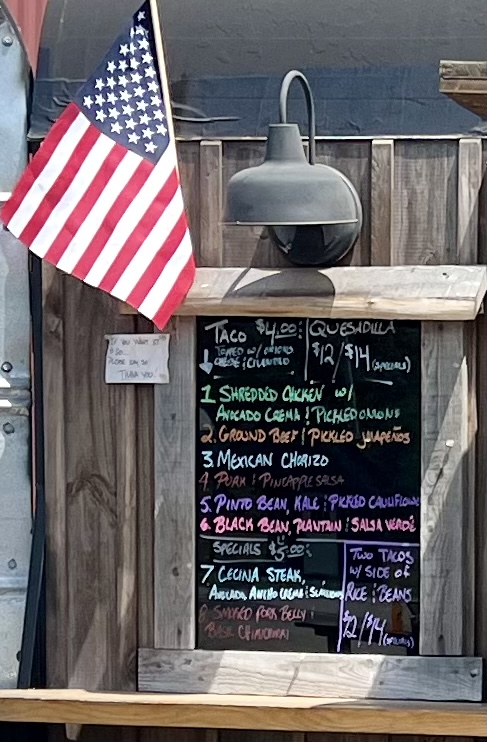 If you want it
to go...
please say so
Thank you!
TACO $4.00:
TOPPED W/ ONIONS
CHEESE & CILANTRO
QUESADILLA
$12/$14 (SPECIALS)
1 SHREDDED CHICKEN W/
AVOCADO CREMA & PICKLED ONIONS
2. GROUND BEEF & PICKLED JALAPEÑOS
3. MEXICAN CHORIZO
4. PORK & PINEAPPLE SALSA
5. PINTO BEAN, KALE & PICKLED CAULIFLOWER
6. BLACK BEAN, PLANTAIN & SALSA VERDE
SPECIALS $5.00:
7 CECINA STEAK,
AVOCADO, ANCHO CREMA & SCALLIONS
8. SMOKED PORK BELLY &
BASIL CHIMICHURRI
TWO TACOS
W/ SIDE OF
RICE & BEANS
$12/$14 (SPECIALS)